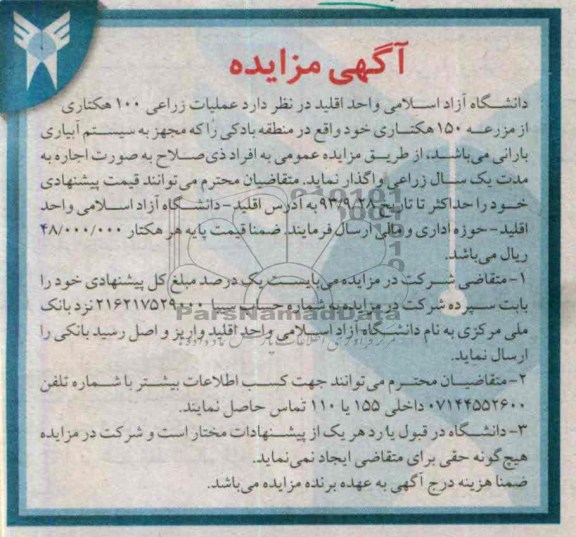 آگهی مزایده
دانشگاه آزاد اسلامی واحد اقلید در نظر دارد عملیات زراعی ۱۰۰ هکتاری
از مزرعه ۱۵۰ هکتاری خود واقع در منطقه بادکی را که مجهز به سیستم آبیاری
بارانی می‌باشد، از طریق مزایده عمومی به افراد ذی‌صلاح به صورت اجاره به
مدت یک سال زراعی واگذار نماید. متقاضیان محترم می‌توانند قیمت پیشنهادی
خود را حداکثر تا تاریخ ۹۳/۹/۲۸ به آدرس اقلید - دانشگاه آزاد اسلامی واحد
اقلید - حوزه اداری و مالی ارسال فرمایند. ضمنا قیمت پایه هر هکتار ۴۸/۰۰۰/۰۰۰
ریال می‌باشد.
۱- متقاضی شرکت در مزایده می‌بایست یک درصد مبلغ کل پیشنهادی خود را
بابت سپرده شرکت در مزایده به شماره حساب سیبا ۲۱۶۲۱۷۵۲۹۰۰۰ نزد بانک
ParsNamadData
ملی مرکزی به نام دانشگاه آزاد اسلامی واحد اقلید واریز و اصل رسید بانکی را
ارسال نماید.
۲- متقاضیان محترم می‌توانند جهت کسب اطلاعات بیشتر با شماره تلفن
۰۷۱۴۴۵۵۲۶۰۰ داخلی ۱۵۵ یا ۱۱۰ تماس حاصل نمایند.
۳- دانشگاه در قبول یا رد هر یک از پیشنهادات مختار است و شرکت در مزایده
هیچ‌گونه حقی برای متقاضی ایجاد نمی‌نماید.
ضمنا هزینه درج آگهی به عهده برنده مزایده می‌باشد.